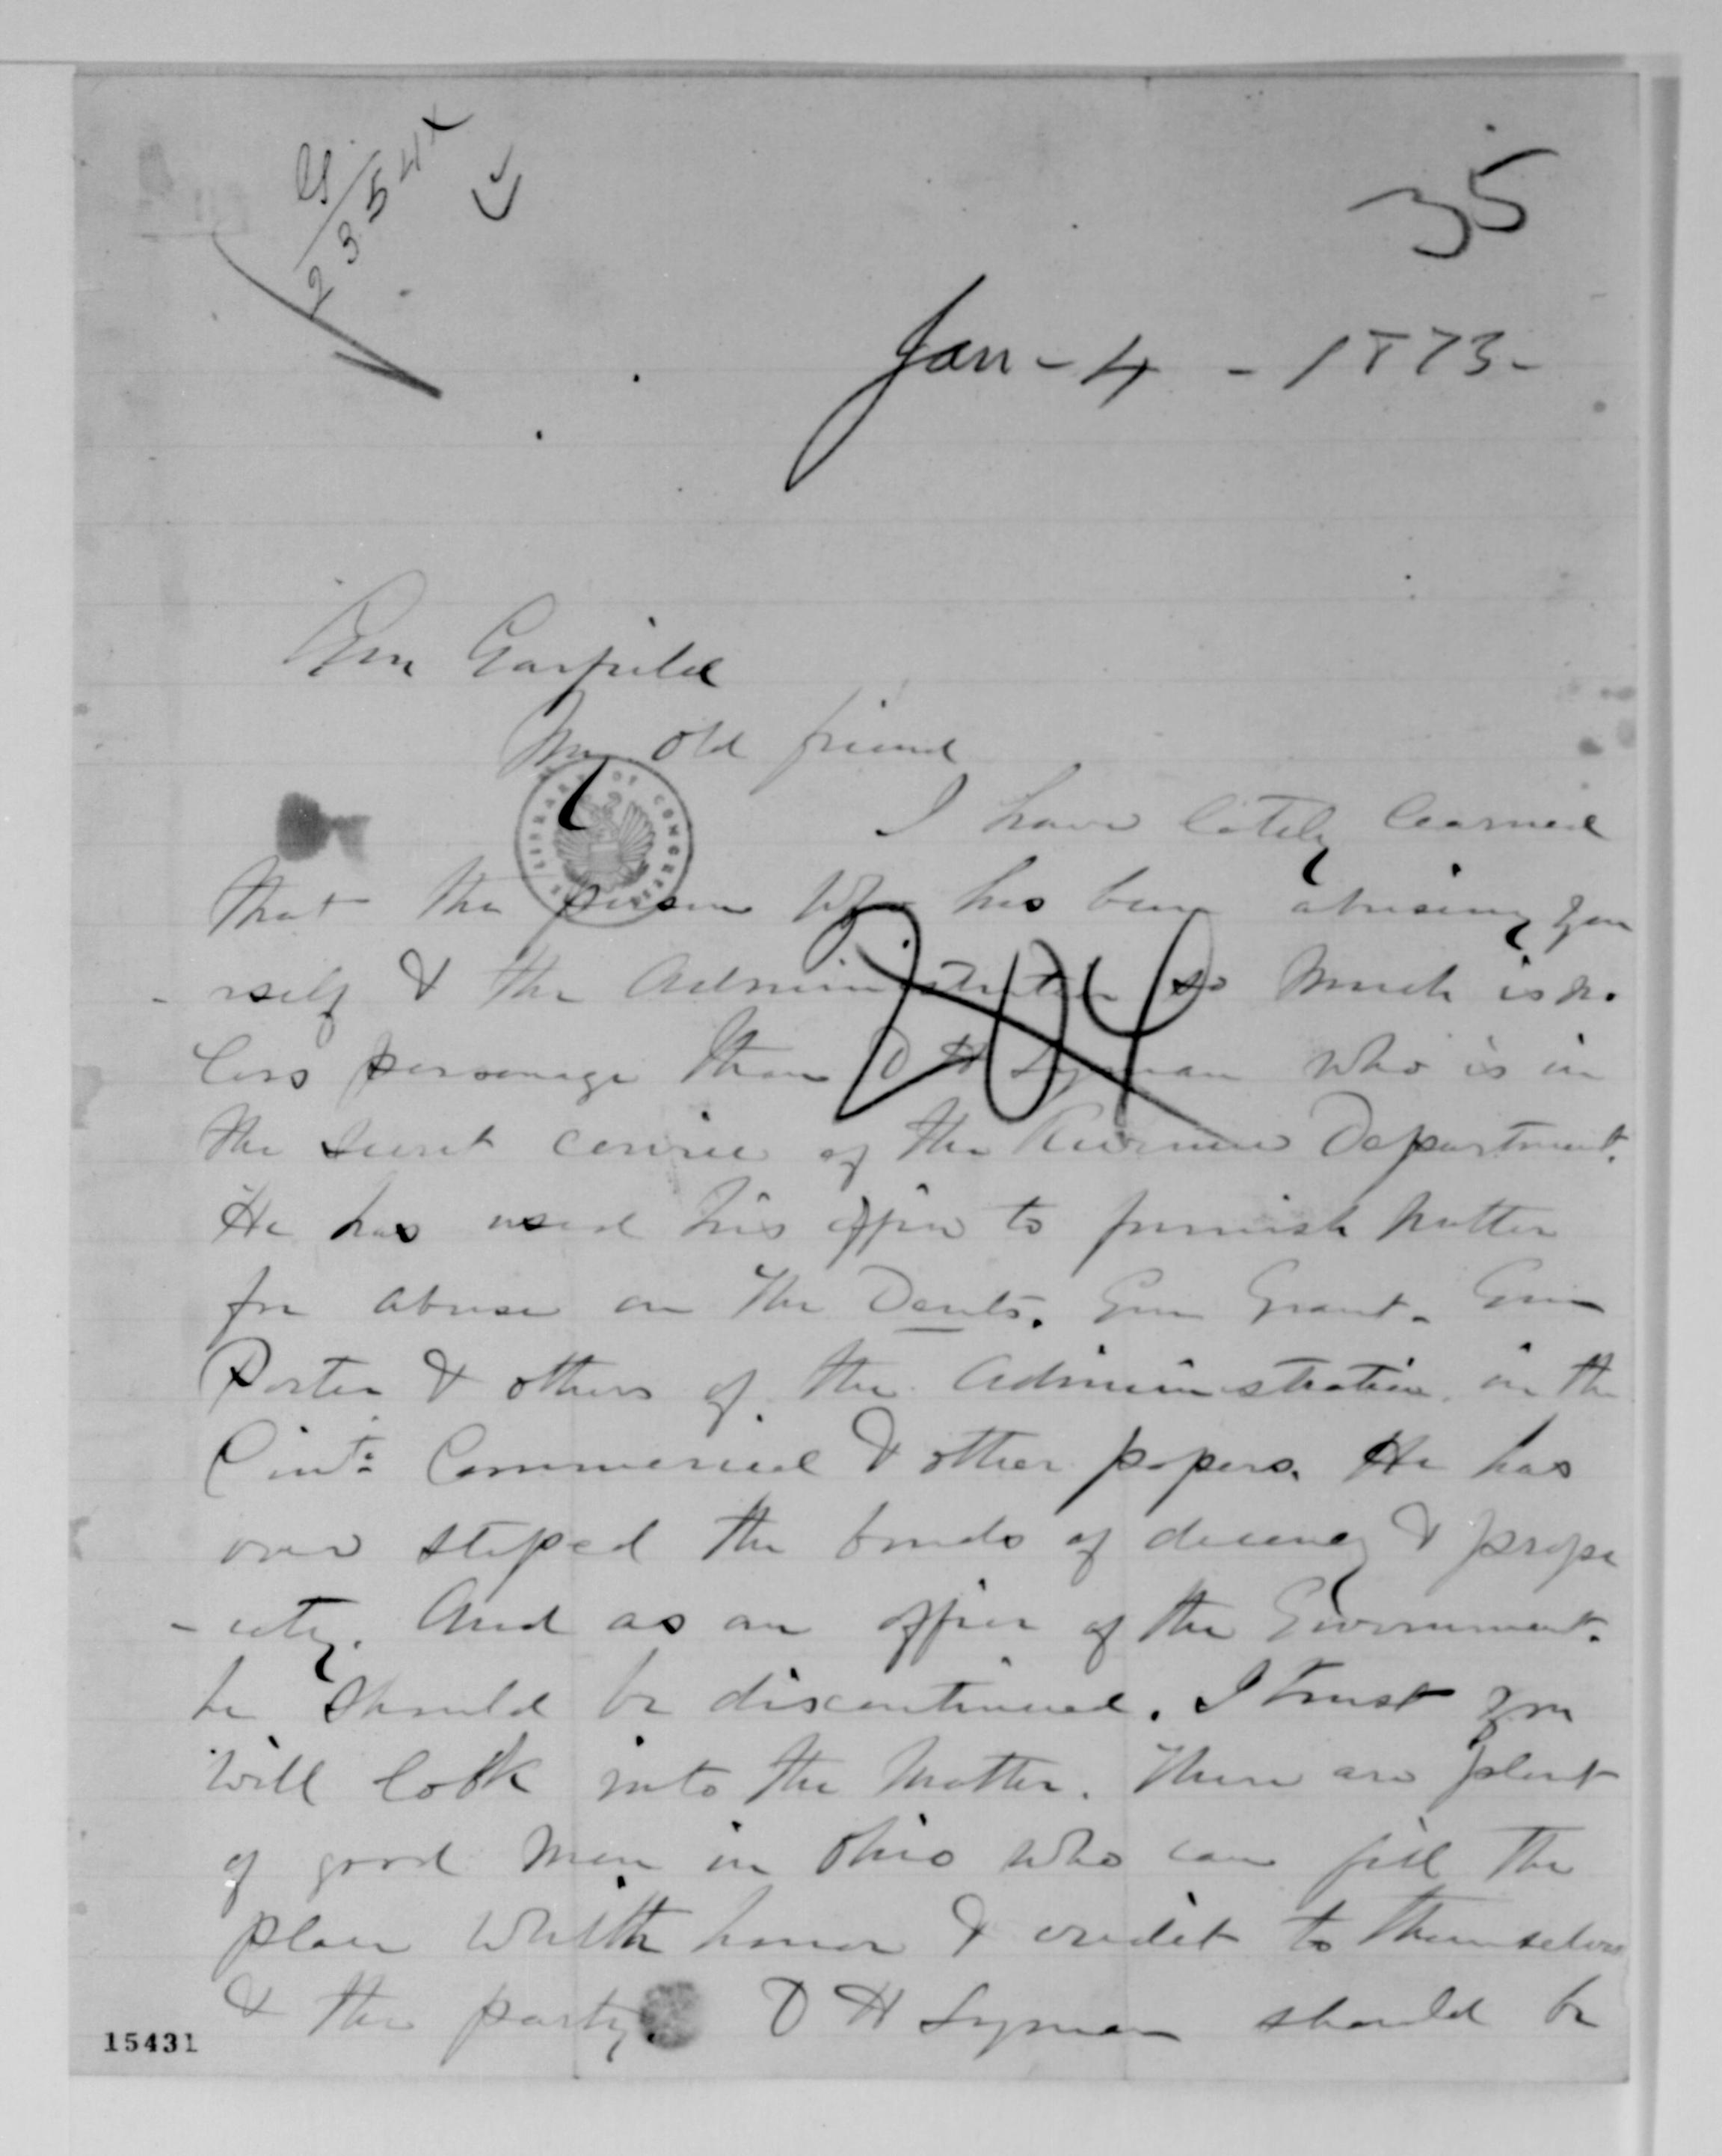 35
2354
Jan - 4 - 1873 -
Gen Garfield
My old friend
LIBRARY OF CONGRESS
I have lately learned
that the person who has been abusing you
- rself & the Administration so much is no
less personage than D H Lyman who is in
the secret cervice of the Revenue Department.
He has used his office to furnish matter
for abuse on the Dents. Gen Grant. Gen
Porter & others of the Administration in the
Cinti Commercial & other papers. He has
over steped the bonds of decency & prope
- iety. And as an officer of the Government.
he should be discontinued. I trust you
will look into the matter. There are plent
of good men in Ohio who can fill the
place whith honor & credit to themselves
& the party. D H Lyman should be
204
15431